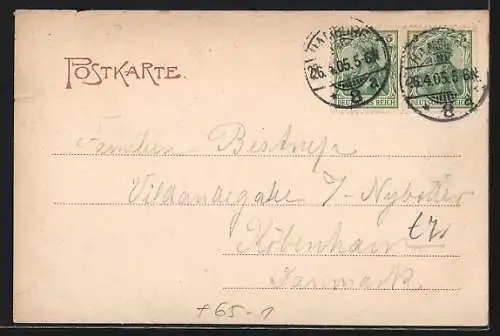 POSTKARTE.
5 5
HAMBURG
26.4.05.5-6N.
* 8 a
26.4.05.5-6N.
* 8 a
DEUTSCHES REICH DEUTSCHES REICH
Familien Bestrup
Vildandegade 7 Nyboder
København
Danmark
+65-1